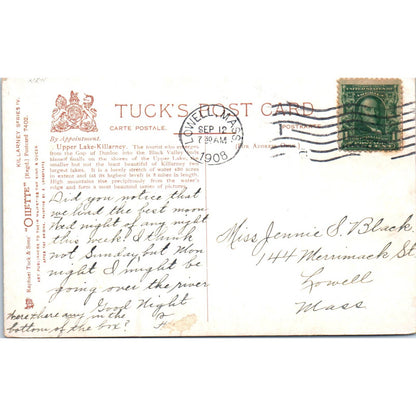 TUCK'S POST CARD
CARTE POSTALE.
POSTKARTE
By Appointment.
Upper Lake-Killarney. The tourist who emerges
from the Gap of Dunloe into the Black Valley
himself finally on the shores of the Upper Lake,
smaller but not the least beautiful of Killarney
largest lakes. It is a lovely stretch of water
in extent and (at its highest level) is
High mountains rise precipitously from the water's
edge and form a most beautiful
KILLARNEY SERIES IV.
Raphael Tuck & Sons' "OILETTE" [Regd.] Postcard 7402.
ART PUBLISHERS TO THEIR MAJESTIES THE KING & QUEEN.
LOWELL, MASS.
SEP 12
7 30 AM
1908
Did you notice that
we had the best moon
bed night of any night
this week? I think
not Sunday but Mon
night I might be
going over the river
Good Night
Were there any in the
bottom of the box?
Miss Jennie S. Black
144 Merrimack St
Lowell
Mass